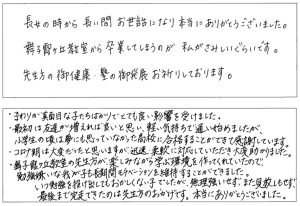 長女の時から長い間お世話になり本当にありがとうございました。
舞子霞ヶ丘教室から卒業してしまうのが私がさみしいぐらいです。
先生方の御健康・塾の御発展お祈りしております。
・まわりが真面目な子たちばかりでとても良い影響を受けました。
・最初は友達が増えれば良いと思い、軽い気持ちで通い始めましたが、
小学生の頃は夢にも思っていなかった高校に合格することができて感謝しています。
・コロナ禍は大変だったと思いますが、迅速、柔軟に対応していただき大変助かりました。
・舞子霞ヶ丘教室の先生方が、楽しみながら学ぶ環境を作ってくれていたので、
勉強嫌いな我が子も長期間モチベーションを維持することができました。
いつ勉強を投げ出してもおかしくない子でしたが、無理強いせず、また見放しもせず、
最後まで完走できたのは先生方のおかげです。本当にありがとうございました。